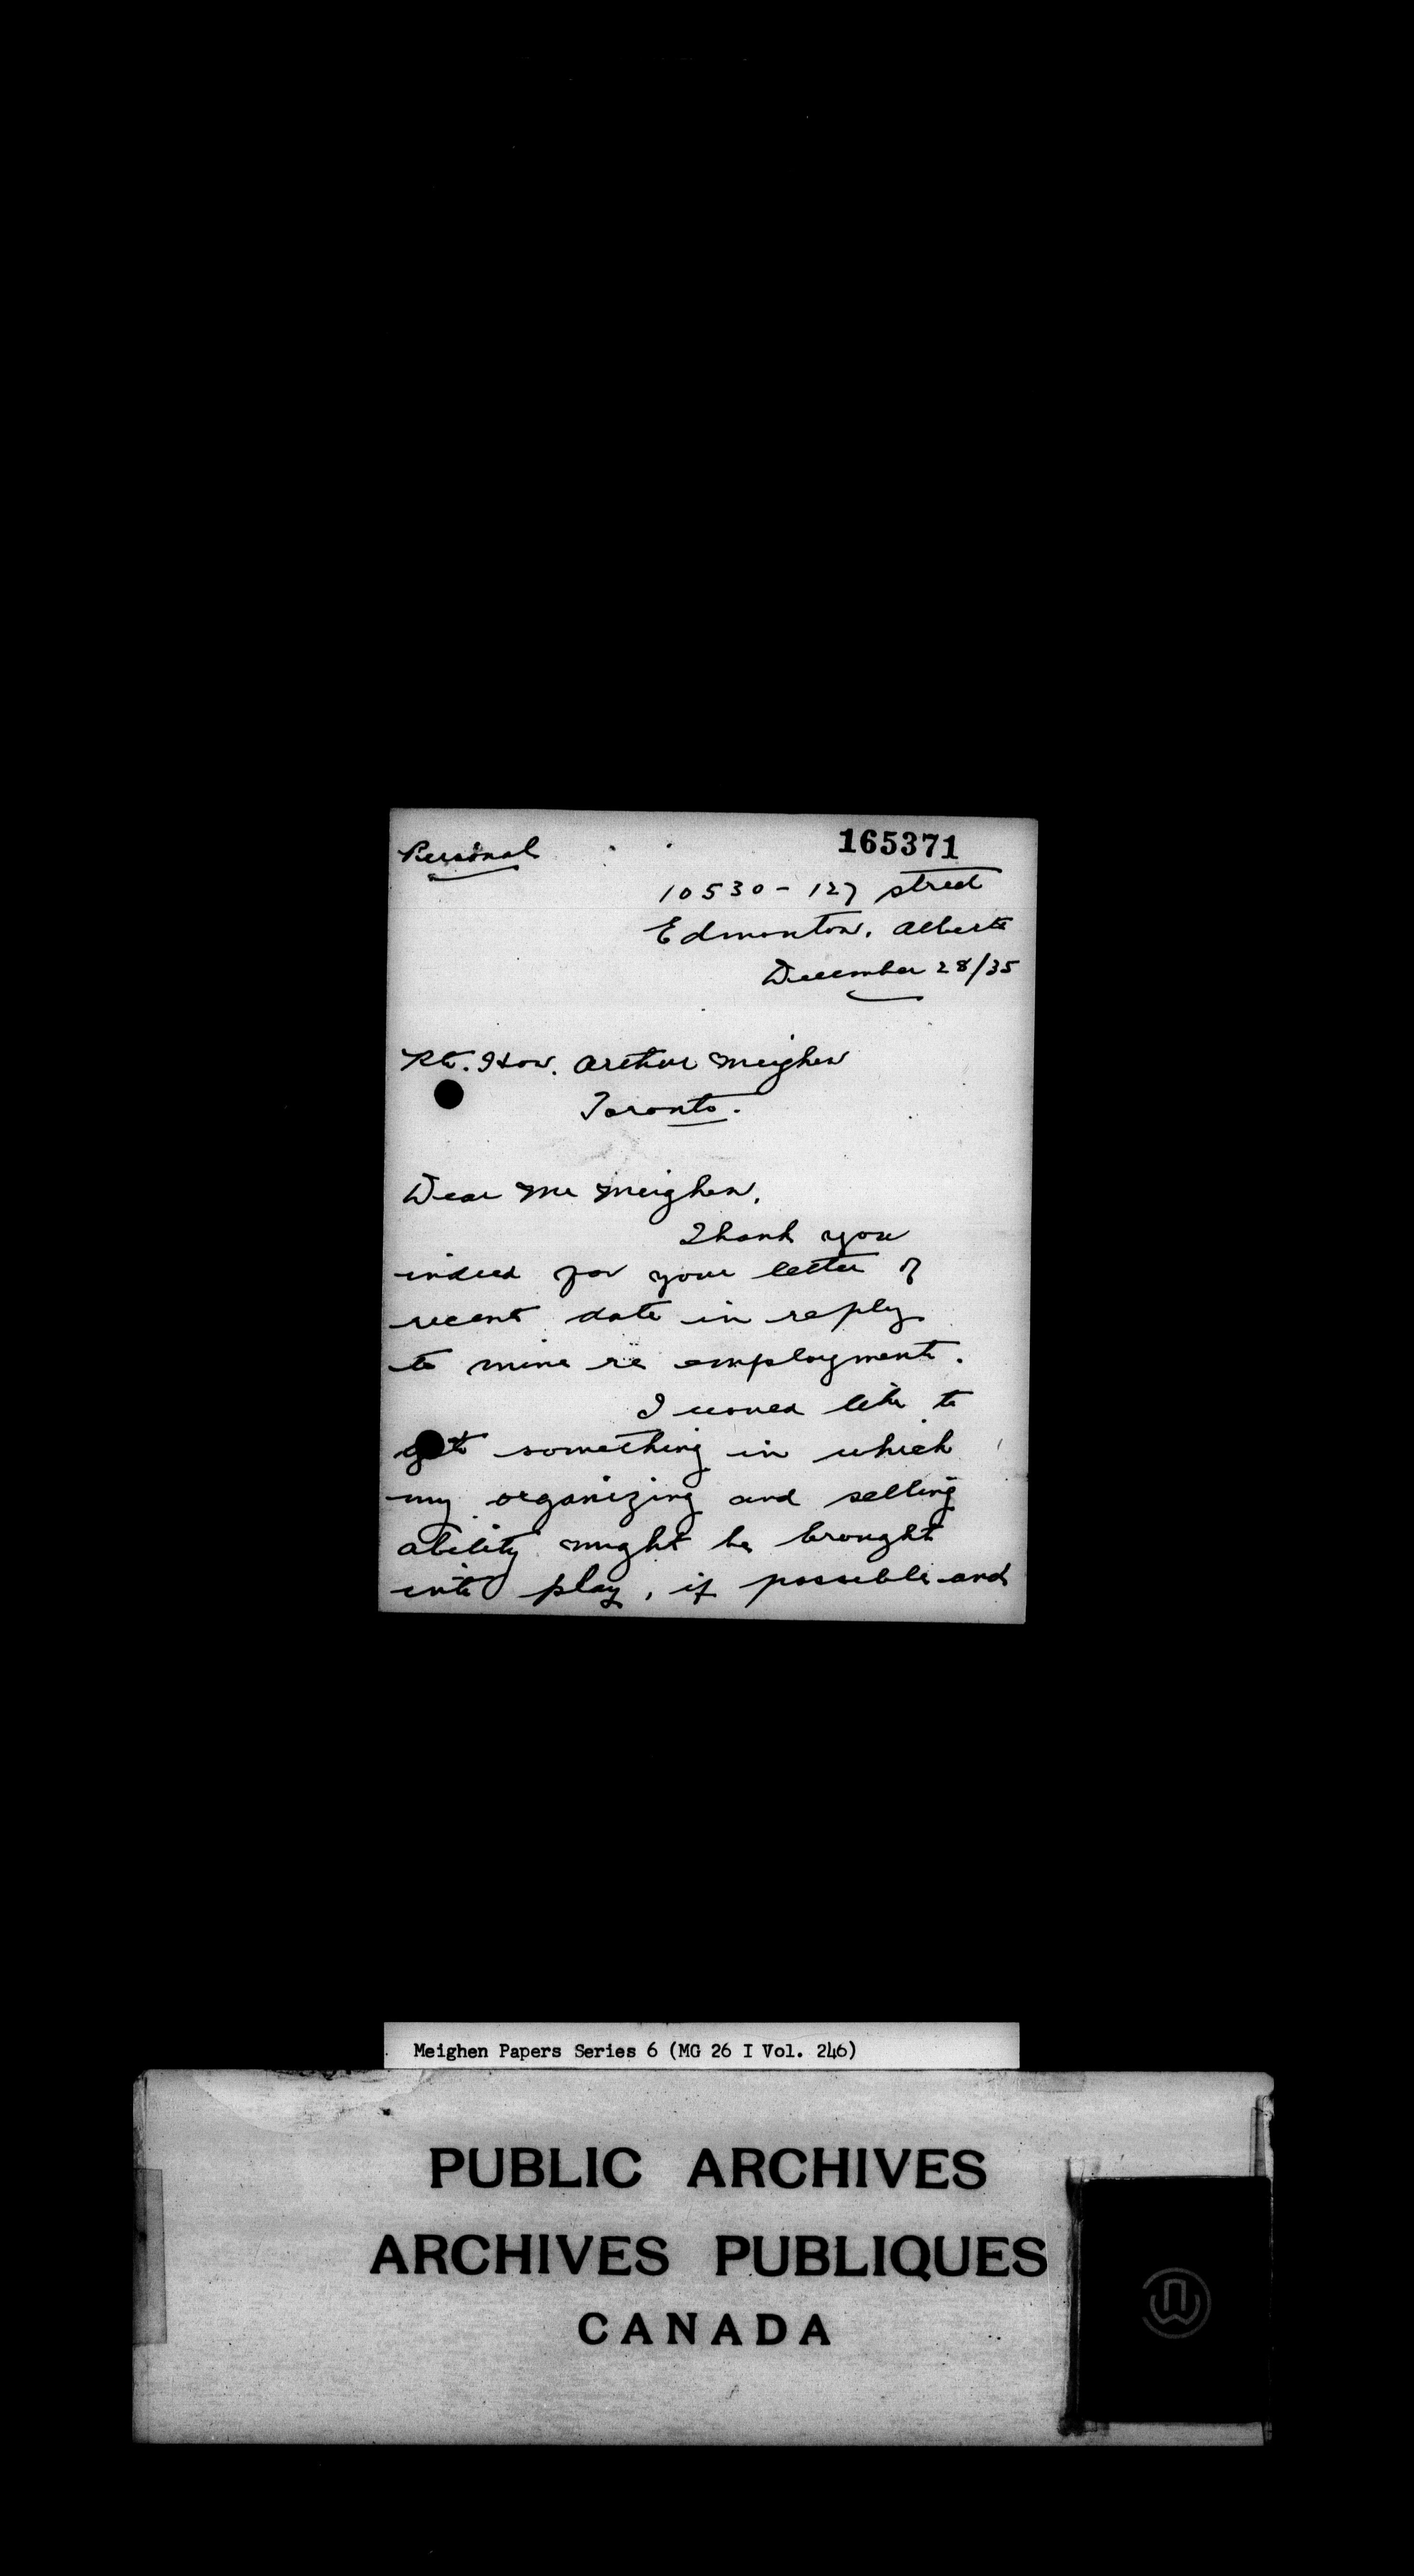 Personal
165371
10530 - 127 street
Edmonton. Alberta
December 28/35
Rt. Hon. Arthur Meighen
Toronto.
Dear Mr Meighen,
Thank you
indeed for your letter of
recent date in reply
to mine re employment.
I would like to
get something in which
my organizing and selling
ability might be brought
into play, if possible and
Meighen Papers Series 6 (MG 26 I Vol. 246)
PUBLIC ARCHIVES
ARCHIVES PUBLIQUES
CANADA